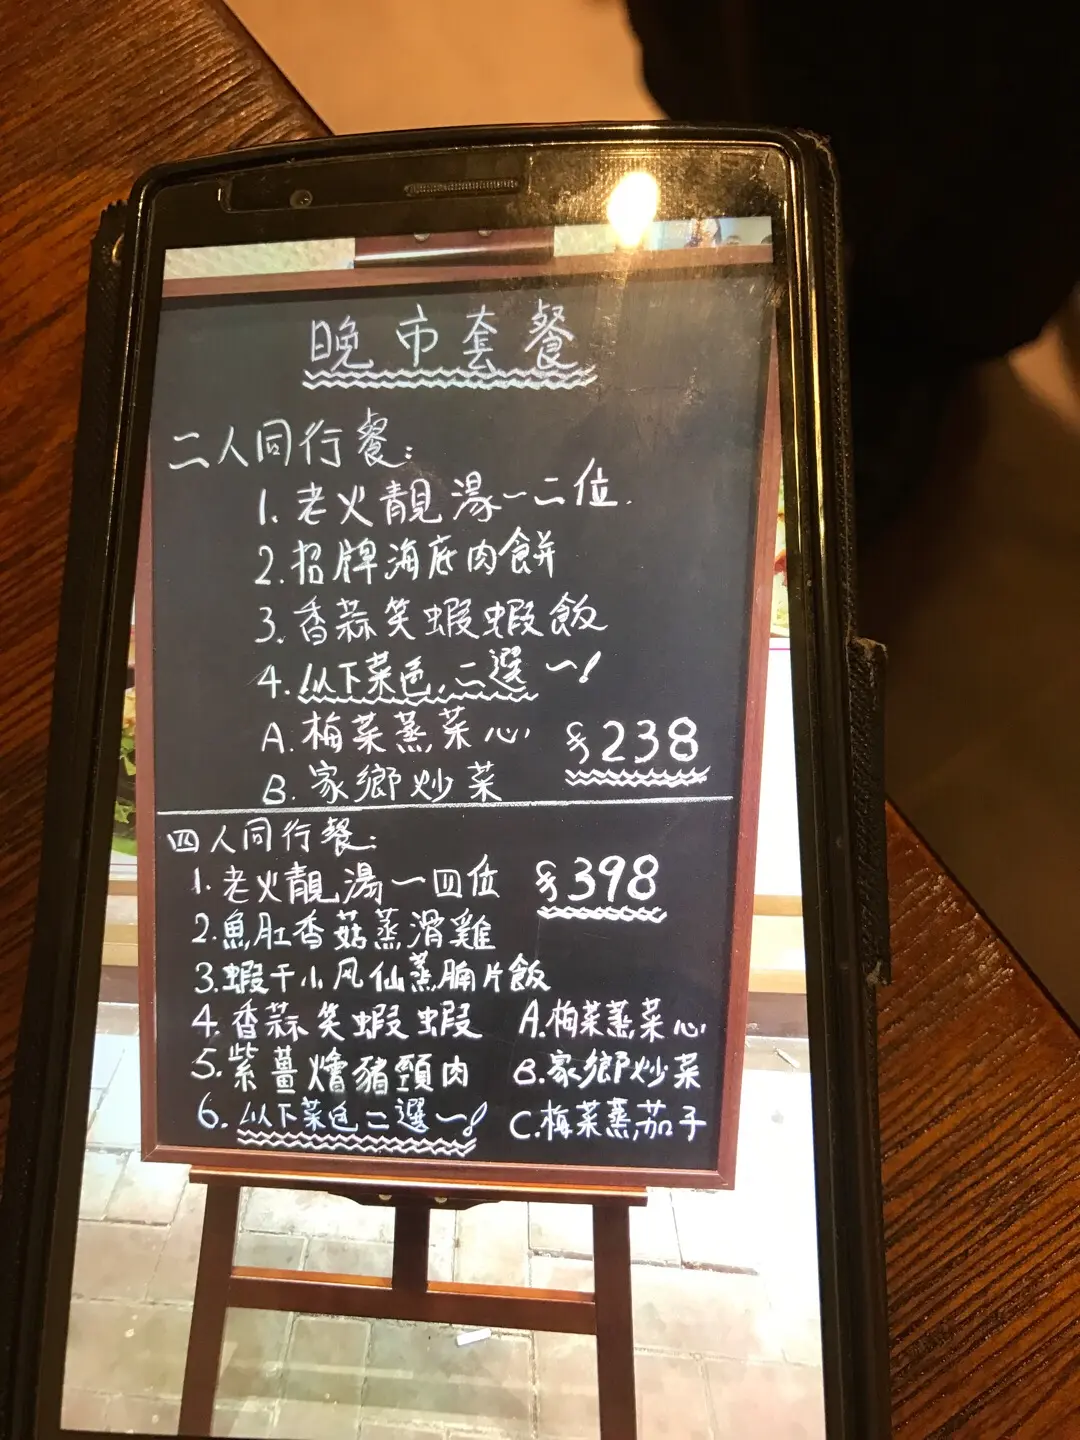 晚市套餐
二人同行餐:
1. 老火靚湯一二位.
2. 招牌海底肉餅
3. 香蒜笑蝦蝦飯
4. 以下菜色,二選一!
A. 梅菜蒸菜心
B. 家鄉炒菜
$238
四人同行餐:
1. 老火靚湯一四位 $398
2. 魚肚香菇蒸滑雞
3. 蝦干小风仙蒸腩片飯
4. 香蒜笑蝦蝦
5. 紫薑燴豬頸肉
6. 以下菜色二選一!
A. 梅菜蒸菜心
B. 家鄉炒菜
C. 梅菜蒸茄子